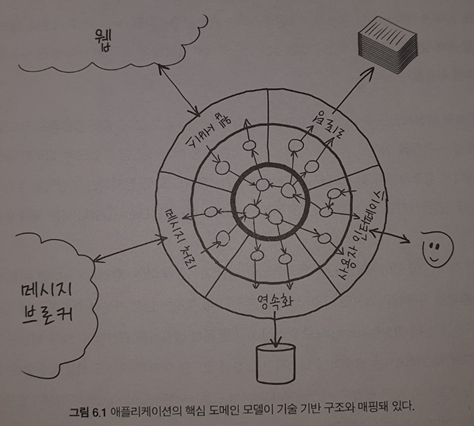 웹
웹 서비스
업로드
메시지 처리
사용자 인터페이스
메시지
브로커
영속화
그림 6.1 애플리케이션의 핵심 도메인 모델이 기술 기반 구조와 매핑돼 있다.